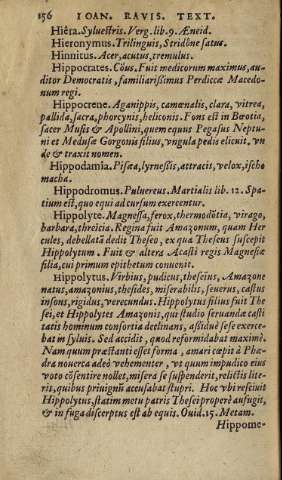 156 IOAN. RAVIS. TEXT.
Hiëra. Syluestris. Verg. lib. 9. Æneid.
Hieronymus. Trilinguis, Stridone satus.
Hinnitus. Acer, acutus, tremulus.
Hippocrates. Cöus. Fuit medicorum maximus, au-
ditor Democratis, familiarissimus Perdiccæ Macedo-
num regi.
Hippocrene. Aganippis, camenalis, clara, vitrea,
pallida, sacra, phorcynis, heliconis. Fons est in Bœotia,
sacer Musis & Apollini, quem equus Pegasus Neptu-
ni et Medusæ Gorgonis filius, vngula pede elicuit, vn
de & traxit nomen.
Hippodamia. Pisæa, lyrnessis, attracis, velox, ischo
macha.
Hippodromus. Puluereus. Martialis lib. 12. Spa-
tium est, quo equi ad cursum exercentur.
Hippolyte. Magnessa, ferox, thermodötia, virago,
barbara, threicia. Regina fuit Amazonum, quam Her
cules, debellatā dedit Theseo, ex qua Theseus suscepit
Hippolytum. Fuit & altera Acasti regis Magnesiæ
filia, cui primum epithetum conuenit.
Hippolytus. Virbius, pudicus, theseius, Amazone
natus, amazonius, thesides, miserabilis, seuerus, castus
insons, rigidus, verecundus. Hippolytus filius fuit The
sei, et Hippolytes Amazonis, qui studio seruandæ casti
tatis hominum consortia declinans, assiduè sese exerce-
bat in syluis. Sed accidit, quod reformidabat maximè.
Nam quum præstanti esset forma, amari cœpit à Phæ-
dra nouerca adeò vehementer, vt quum impudico eius
voto cōsentire nollet, misera se suspenderit, relictis lite-
ris, quibus priuignū accusabat stupri. Hoc vbi resciuit
Hippolytus, statim metu patris Thesei properè aufugit,
& in fuga discerptus est ab equis. Ouid. 15. Metam.
Hippome-